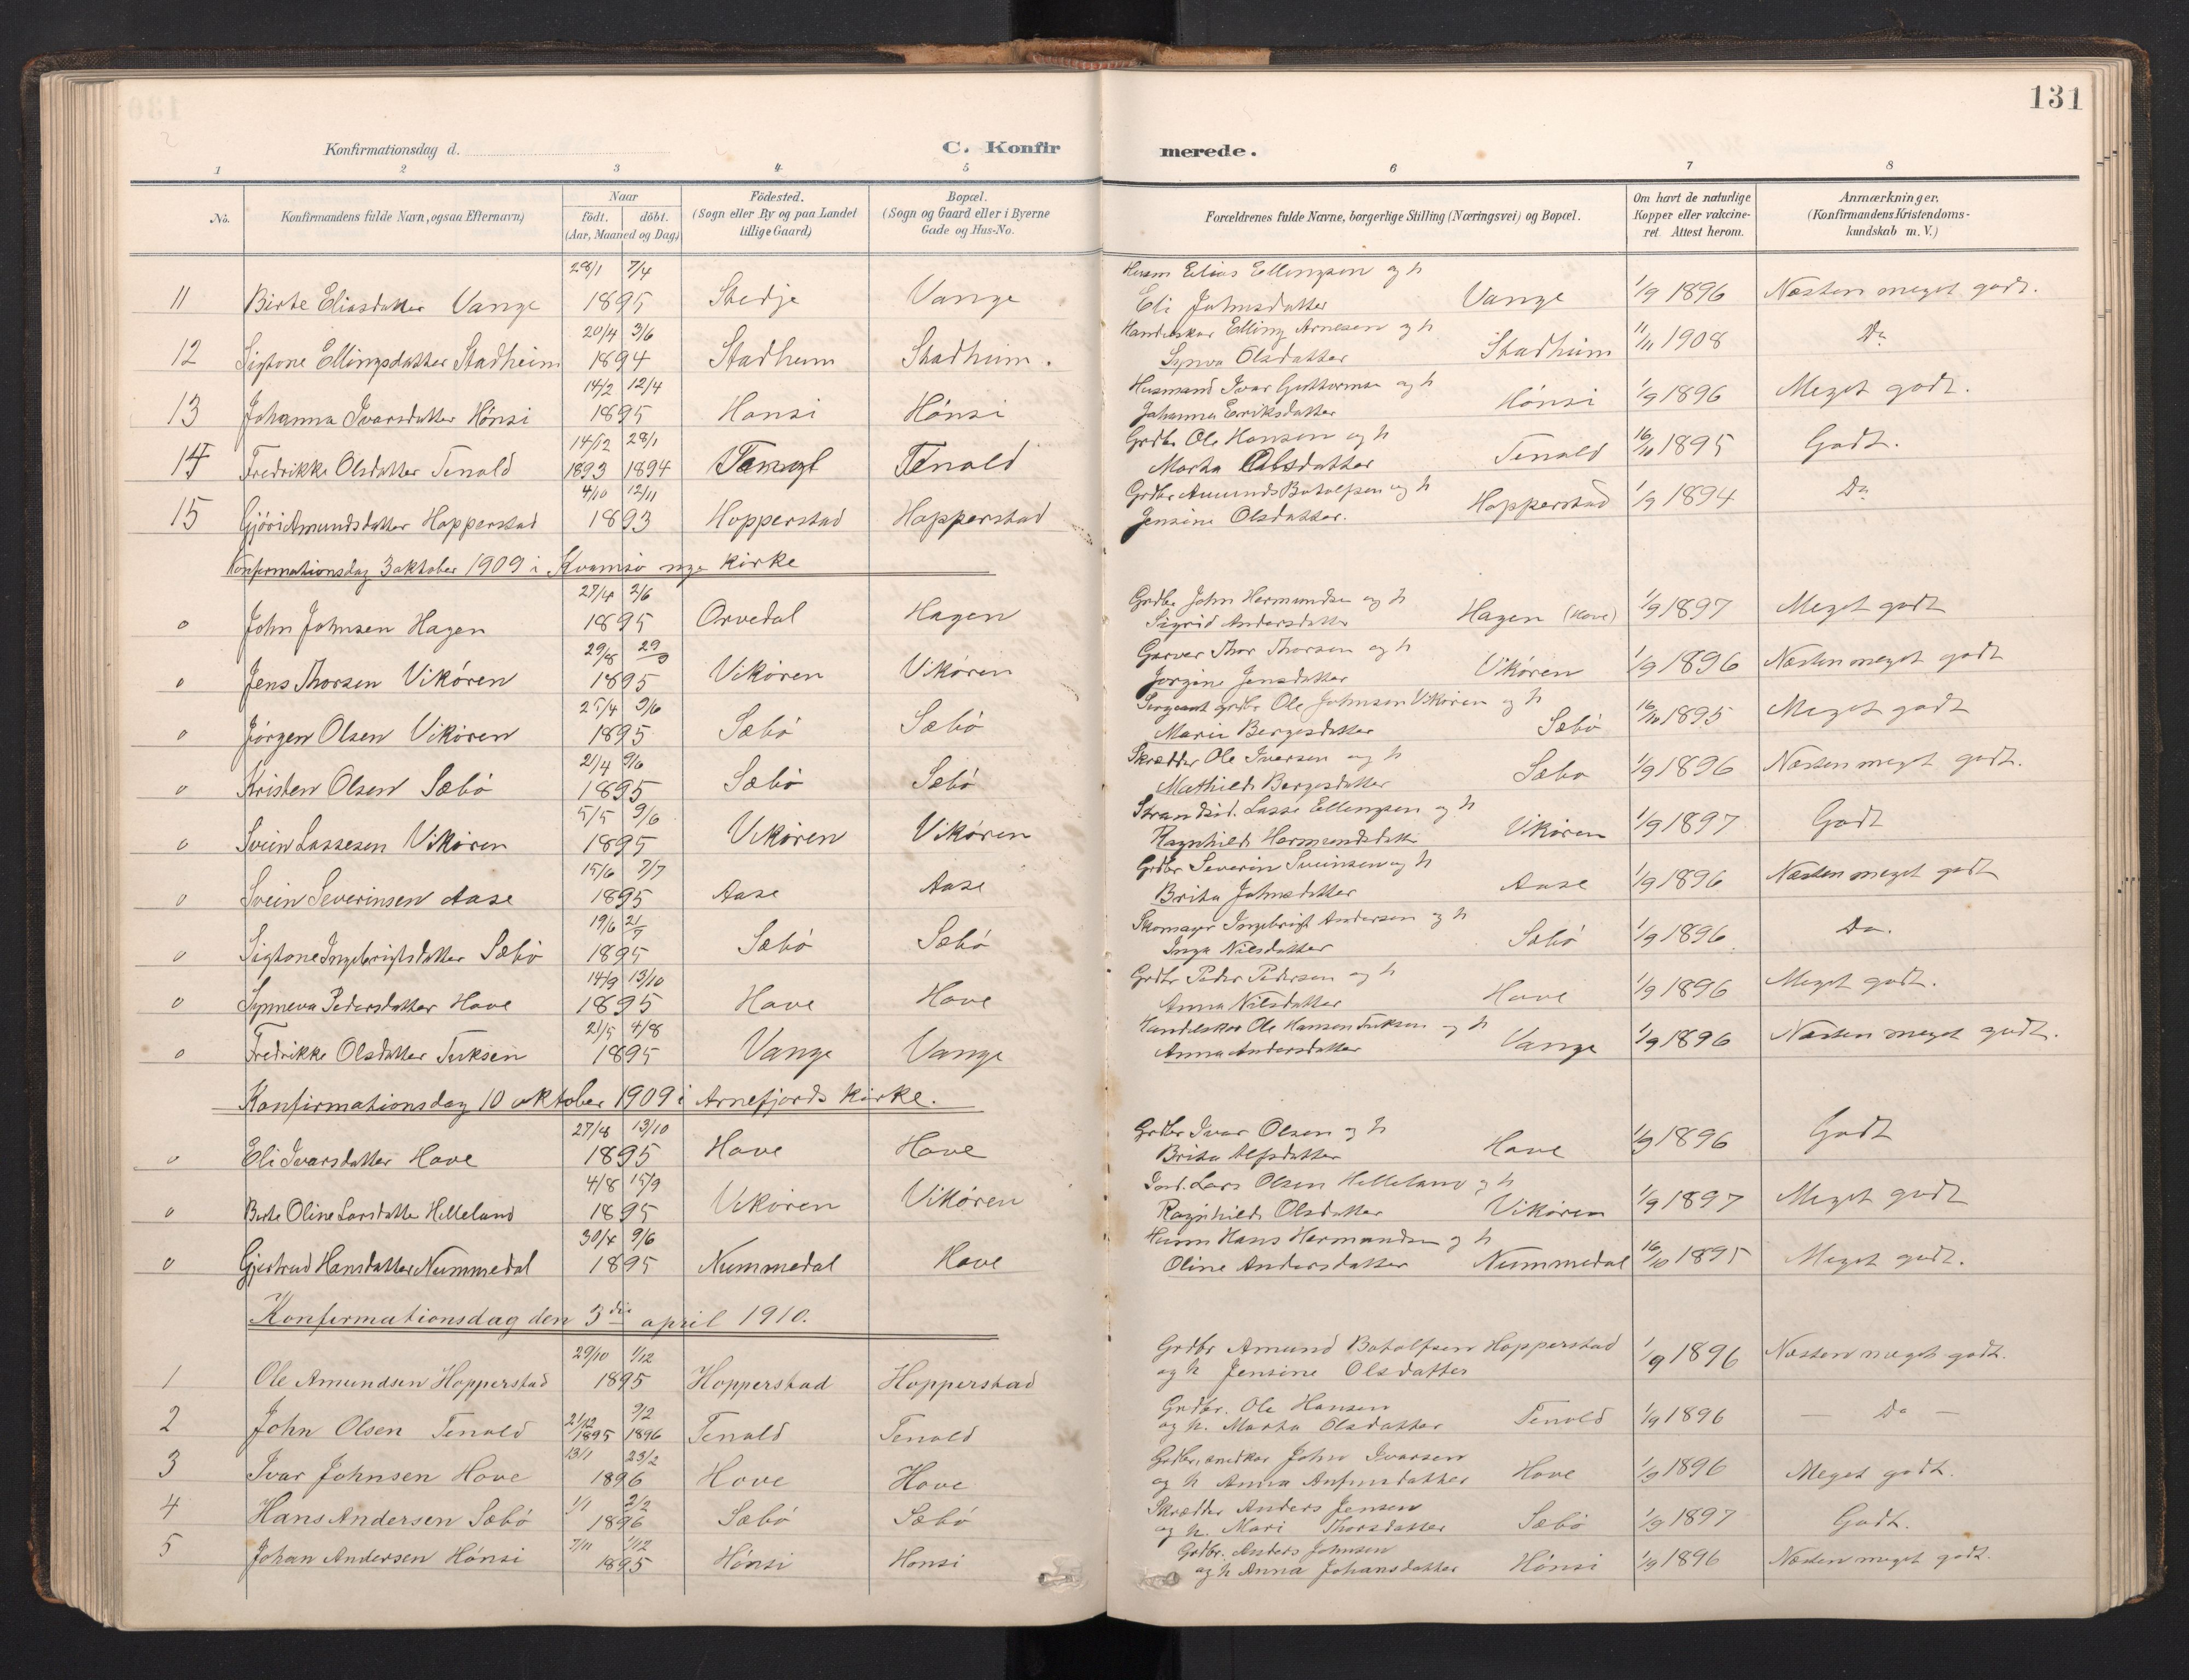 131
Konfirmationsdag d.
C. Konfirmerede.
1 2 3 4 5 6 7 8
No. Konfirmandens fulde Navn, ogsaa Efternavn) Naar födt. döbt. (Aar, Maaned og Dag) Födested. (Sogn eller By og paa Landet tillige Gaard) Bopæl. (Sogn og Gaard eller i Byerne Gade og Hus-No. Forældrenes fulde Navne, borgerlige Stilling (Næringsvei) og Bopæl. Om havt de naturlige Kopper eller vakcineret. Attest herom. Anmærkninger. (Konfirmandens Kristendomskundskab m. V.)
28/1 7/4 Husm Elias Ellingsen og h
11 Birte Eliasdatter Vange 1895 Stedje Vange Eli Johnsdatter Vange 1/9 1896 Næsten meget godt.
20/4 3/6 Elling Arnesen og h
12 Sigtone Ellingsdatter Stadheim 1894 Stadheim Stadheim. Synva Olsdatter Stadheim 11/11 1908 Do
14/2 12/4 Husmand Ivar Guttormsen og h
13 Johanna Ivarsdatter Hönsi 1895 Hönsi Hönsi Johanna Eeriksdatter Hönsi 1/9 1896 Meget godt.
14/12 28/1 Grdbr Ole Hansen og h
14 Fredrikke Olsdatter Tenold 1893 1894 Tenold Marta Olsdatter Tenold 16/10 1895 Godt.
4/10 12/11 Grdbr Amunds Botolfsen og h
15 Gjöri Amundsdatter Hopperstad 1893 Hopperstad Hopperstad Jensine Olsdatter. Hopperstad 1/9 1894 Do
Konfirmationsdag 3 oktober 1909 i Kvamsö nye kirke
27/4 2/6 Grdbr John Hermundsen og h
o John Johnsen Hagen 1895 Orvedal Hagen Sigrid Andersdatter Hagen (Hove) 1/9 1897 Meget godt
29/8 29/9 Garver Thor Thorsen og h
o Jens Thorsen Vikören 1895 Vikören Vikören Jorgine Jensdatter Vikören 1/9 1896 Næsten meget godt
25/4 9/6 Sergeant grdbr Ole Johnsen Vikören og h
o Jörgen Olsen Vikören 1895 Sæbö Sæbö Marie Bergesdatter Sæbö 16/10 1895 Meget godt
21/4 9/6 Skrædder Ole Iversen og h
o Kristen Olsen Sæbö 1895 Sæbö Sæbö Mathilde Bergesdatter Sæbo 1/9 1896 Næsten meget godt.
5/5 9/6 Strandsid. Lasse Ellingsen og h
o Svein Lassesen Vikören 1895 Vikören Vikören Ragnhild Hermundsdatter Vikören 1/9 1897 Godt
15/6 7/7 Grdbr Severin Sveinsen og h
o Svein Severinsen Aase 1895 Aase Aase Brita Johnsdatter Aase 1/9 1896 Næsten meget godt
19/6 21/7 Skomager Ingebrigt Andersen og h
o Sigtone Ingebrigtsdatter Sæbö 1895 Sæbö Sæbö Inga Nilsdatter Sæbö 1/9 1896 Do.
14/9 13/10 Grdbr Peder Pedersen og h
o Synneva Pedersdatter Hove 1895 Hove Hove Anna Nilsdatter Hove 1/9 1896 Meget godt.
21/5 4/8 Handelskar Ole Hansen Tuksen og h
o Fredrikke Olsdatter Tuksen 1895 Vange Vange Anna Andersdatter Vange 1/9 1896 Næsten meget godt.
Konfirmationsdag 10 oktober 1909 i Arnefjords kirke.
27/8 13/10 Grdbr Ivar Olsen og h
o Eli Ivarsdatter Hove 1895 Hove Hove Brita Alfsdatter Hove 1/9 1896 Godt
4/8 15/9 Lars Olsen Helleland og h
o Birte Oline Larsdatter Helleland 1895 Vikören Vikören Ragnhild Olsdatter Vikören 1/9 1897 Meget godt
30/4 9/6 Husm Hans Hermundsen og h
o Gjertrud Hansdatter Nummedal 1895 Nummedal Hove Oline Andersdatter Nummedal 16/10 1895 Meget godt.
Konfirmationsdag den 3die april 1910.
29/10 1/12 Grdbr Amund Botolfsen Hopperstad
1 Ole Amundsen Hopperstad 1895 Hopperstad Hopperstad og h Jensine Olsdatter 1/9 1896 Næsten meget godt.
21/12 9/2 Grdbr. Ole Hansen
2 John Olsen Tenold 1895 1896 Tenold Tenold og h. Marta Olsdatter Tenold 1/9 1896 — Do —
13/1 23/2 Grdbr, snedker John Ivarsen
3 Ivar Johnsen Hove 1896 Hove Hove og h Anna Anfindatter Hove 1/9 1896 Meget godt.
1/1 2/2 Skrædder Anders Jensen
4 Hans Andersen Sæbö 1896 Sæbö Sæbö og h. Mari Thorsdatter Sæbö 1/9 1897 Godt.
7/11 1/12 Grdbr. Anders Johnsen
5 Johan Andersen Hönsi 1895 Hönsi Hönsi og h Anna Johansdatter Hönsi 1/9 1896 Næsten meget godt.